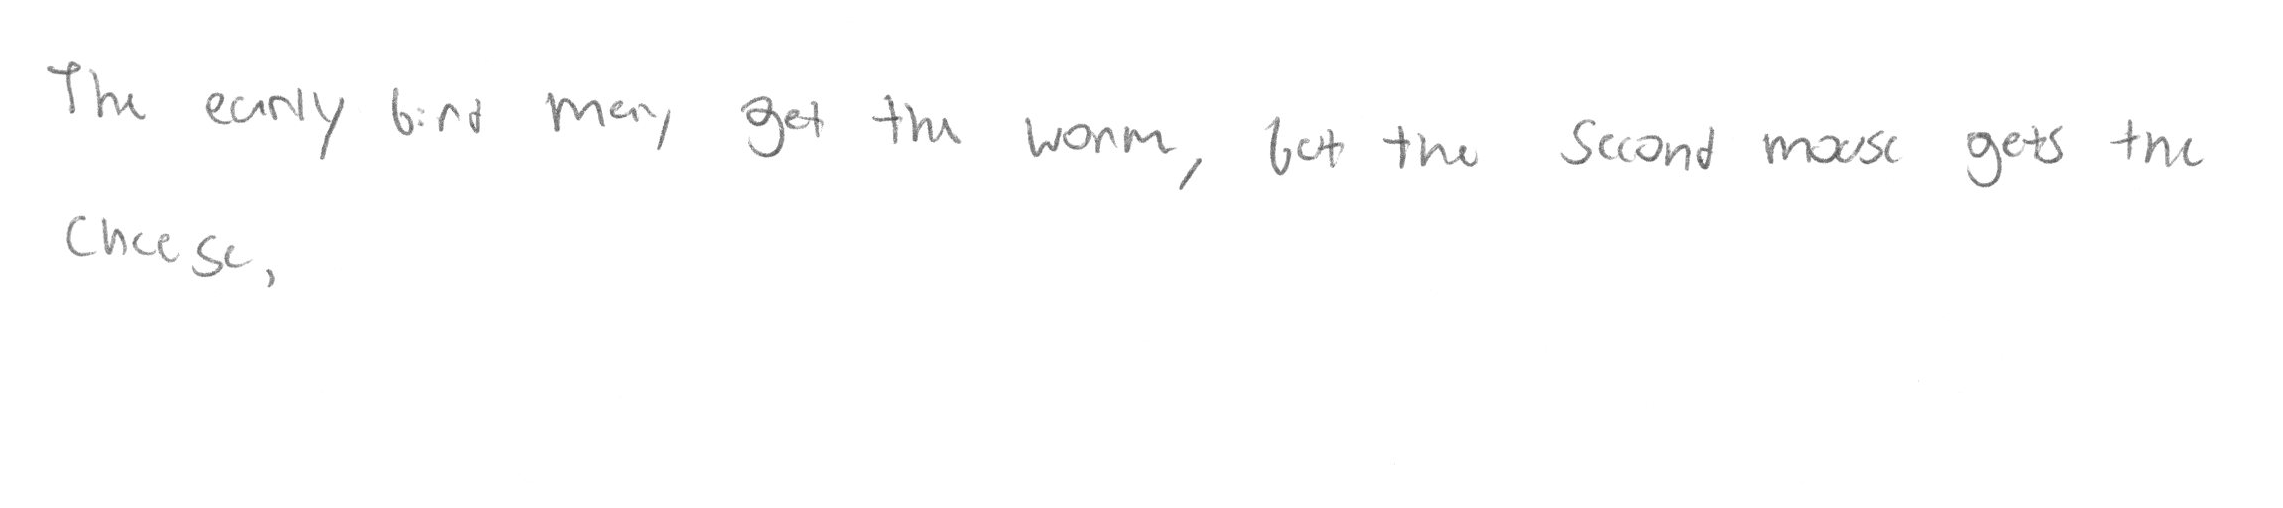 The early bird may get the worm, but the second mouse gets the
cheese,